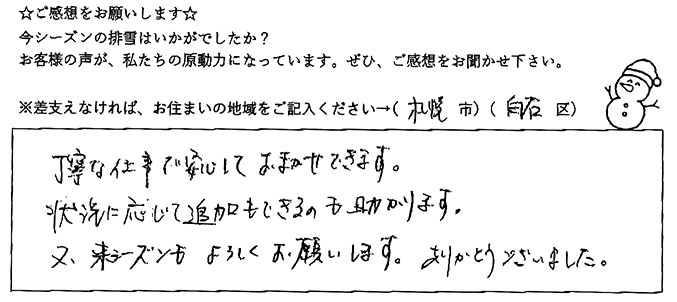 ☆ご感想をお願いします☆
今シーズンの排雪はいかがでしたか？
お客様の声が、私たちの原動力になっています。ぜひ、ご感想をお聞かせ下さい。
※差支えなければ、お住まいの地域をご記入ください→( 札幌 市) ( 白石 区)
丁寧な仕事で安心しておまかせできます。
状況に応じて追加もできるのも助かります。
又、来シーズンもよろしくお願いします。ありがとうございました。